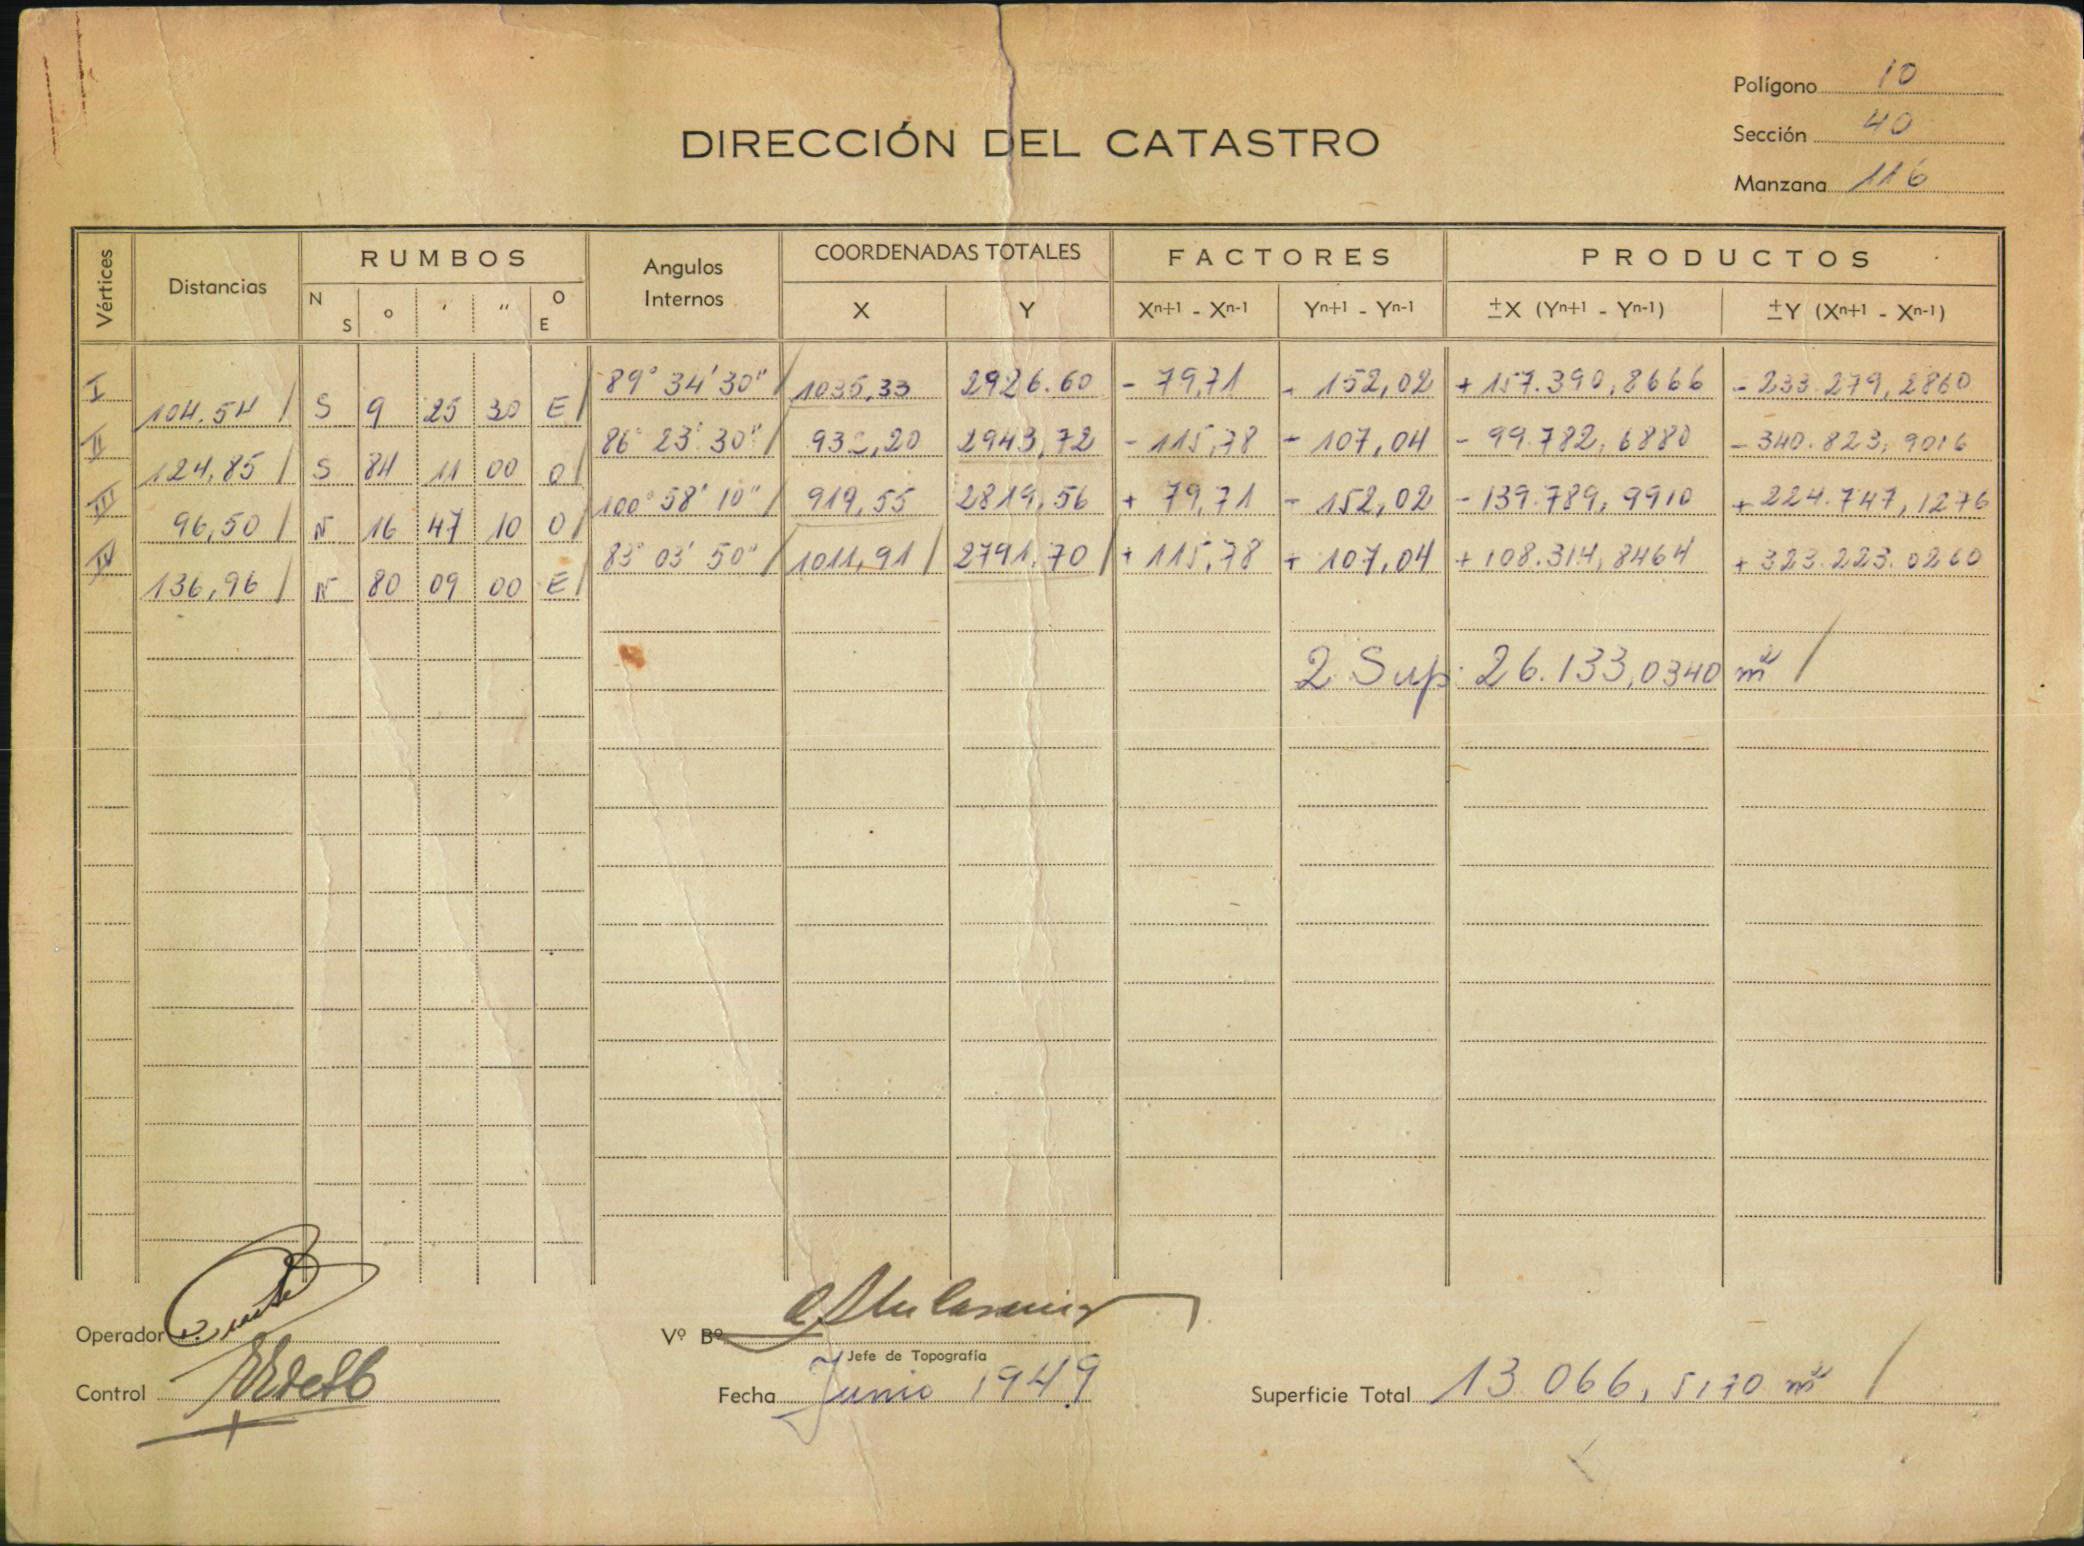 Polígono 10
DIRECCIÓN DEL CATASTRO
Sección 40
Manzana 116
Vértices Distancias RUMBOS Angulos Internos COORDENADAS TOTALES FACTORES PRODUCTOS
N S o ' " O E X Y Xn+1 - Xn-1 Yn+1 - Yn-1 ±X (Yn+1 - Yn-1) ±Y (Xn+1 - Xn-1)
I 89° 34' 30" 1035,33 2926.60 - 79,71 + 152,02 + 157.390,8666 - 233.279,2860
104.54 S 9 25 30 E
II 86° 23' 30" 932,20 2943,72 - 115,78 - 107,04 - 99.782,6880 - 340.823,9016
124,85 S 84 11 00 O
III 100° 58' 10" 919,55 2819,56 + 79,71 - 152,02 - 139.789,9910 + 224.747,1276
96,50 N 16 47 10 O
IV 83° 03' 50" 1011,91 2791.70 + 115,78 + 107,04 + 108.314,8464 + 323.223.0260
136,96 N 80 09 00 E
2 Sup. 26.133,0340 m²
Operador
Vº Bº
Jefe de Topografía
Control
Fecha Junio 1949
Superficie Total 13 066,5170 m²